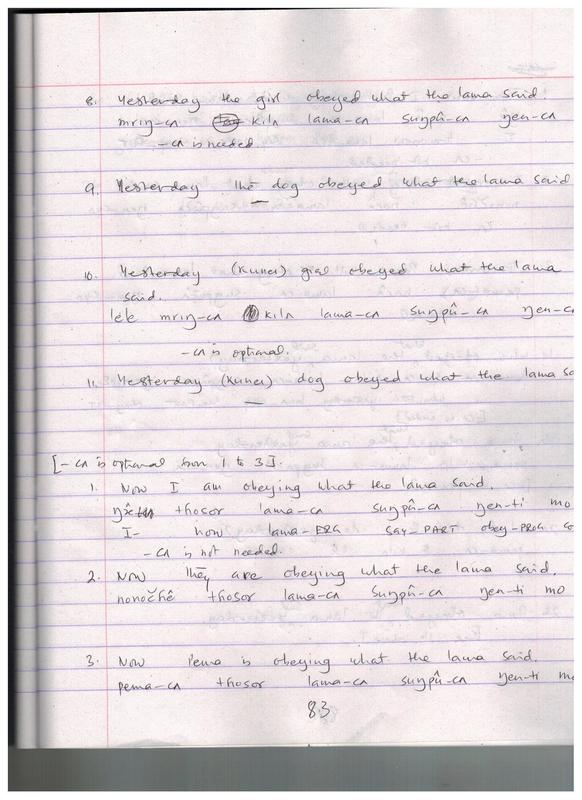 8. Yesterday the girl obeyed what the lama said
mrıŋ-cʌ kilʌ lama-cʌ suŋpû-cʌ ŋen-cʌ
-cʌ is needed
9. Yesterday the dog obeyed what the lama said
—
10. Yesterday (Kunei) girl obeyed what the lama
said.
lee mrıŋ-cʌ kilʌ lama-cʌ suŋpû-cʌ ŋen-c
-cʌ is optional.
11. Yesterday (Kunei) dog obeyed what the lama sa
—
[-cʌ is optional from 1 to 3].
1. Now I am obeying what the lama said.
thosor lama-cʌ suŋpû-cʌ ŋen-ti mo
I- now lama-ERG say-PART obey-PROG
-cʌ is not needed.
2. Now they are obeying what the lama said.
nonočhê thosor lama-cʌ suŋpû-cʌ ŋen-ti mo
3. Now Pema is obeying what the lama said.
pema-cʌ thosor lama-cʌ suŋpû-cʌ ŋen-ti mo
83